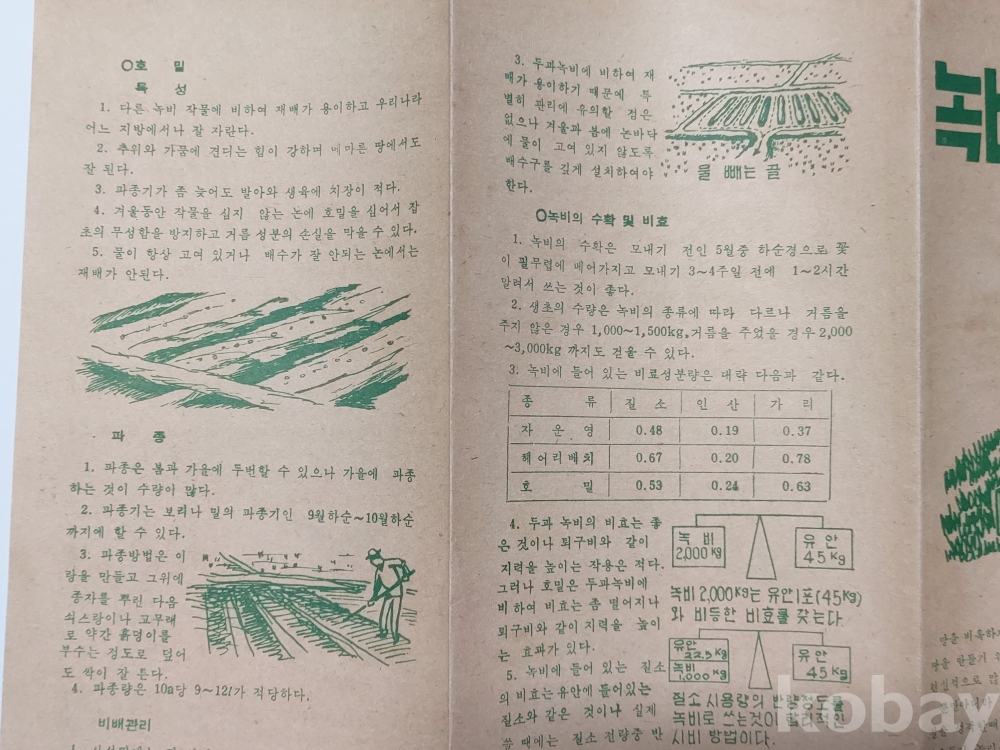 ○호 밀
특 성
1. 다른 녹비 작물에 비하여 재배가 용이하고 우리나라
어느 지방에서나 잘 자란다.
2. 추위와 가뭄에 견디는 힘이 강하며 메마른 땅에서도
잘 된다.
3. 파종기가 좀 늦어도 발아와 생육에 지장이 적다.
4. 겨울동안 작물을 심지 않는 논에 호밀을 심어서 잡
초의 무성함을 방지하고 거름 성분의 손실을 막을 수 있다.
5. 물이 항상 고여 있거나 배수가 잘 안되는 논에서는
재배가 안된다.
파 종
1. 파종은 봄과 가을에 두번할 수 있으나 가을에 파종
하는 것이 수량이 많다.
2. 파종기는 보리나 밀의 파종기인 9월하순~10월하순
까지에 할 수 있다.
3. 파종방법은 이
랑을 만들고 그위에
종자를 뿌린 다음
쇠스랑이나 고무래
로 약간 흙덩이를
부수는 정도로 덮어
도 싹이 잘 튼다.
4. 파종량은 10a당 9~12l가 적당하다.
비배관리
3. 두과녹비에 비하여 재
배가 용이하기 때문에 특
별히 관리에 유의할 점은
없으나 겨울과 봄에 논바닥
에 물이 고여 있지 않도록
배수구를 깊게 설치하여야
한다.
물 빼는 골
○녹비의 수확 및 비효
1. 녹비의 수확은 모내기 전인 5월중 하순경으로 꽃
이 필무렵에 베어가지고 모내기 3~4주일 전에 1~2시간
말려서 쓰는 것이 좋다.
2. 생초의 수량은 녹비의 종류에 따라 다르나 거름을
주지 않은 경우 1,000~1,500kg, 거름을 주었을 경우 2,000
~3,000kg 까지도 걷울 수 있다.
3. 녹비에 들어 있는 비료성분량은 대략 다음과 같다.
종 류 질 소 인 산 가 리
자 운 영 0.48 0.19 0.37
헤어리베치 0.67 0.20 0.78
호 밀 0.53 0.24 0.63
4. 두과 녹비의 비효는 좋
은 것이나 퇴구비와 같이
지력을 높이는 작용은 적다.
그러나 호밀은 두과녹비에
비하여 비효는 좀 떨어지나
퇴구비와 같이 지력을 높이
는 효과가 있다.
5. 녹비에 들어 있는 질소
의 비효는유안에 들어있는
질소와 같은 것이나 실제
쓸 때에는 질소 전량중 반
녹비
2,000kg
유안
45kg
녹비 2,000kg는 유안1포(45kg)
와 비등한 비효를 갖는다.
유안
22.5kg
녹비
1,000kg
유안
45kg
질소 시용량의 반량정도를
녹비로 쓰는것이 합리적인
시비 방법이다.
kobay